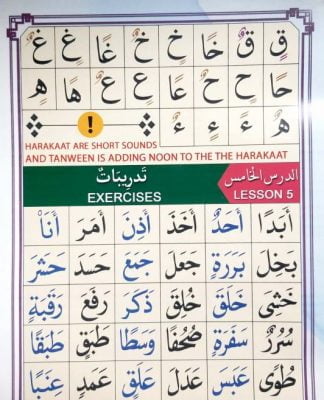 قٍ قٌ خًا خٍ خٌ غًا غٍ غٌ
حًا حٍ حٌ عًا عٍ عٌ هًا هٍ
هٌ ءً ءٍ ءٌ !
HARAKAAT ARE SHORT SOUNDS
AND TANWEEN IS ADDING NOON TO THE THE HARAKAAT
الدرس الخامس تَدرِيبَاتٌ
LESSON 5 EXERCISES
أَبَدًا أَحَدٌ أَخَذَ أَذِنَ أَمَرَ أَنَا
بَخِلَ بَرَرَةٍ جَعَلَ جَمَعَ حَسَدَ حَشَرَ
خَشِيَ خَلَقَ خُلِقَ ذَكَرَ رَفَعَ رَقَبَةٍ
سُرُرٌ سَفَرَةٍ صُحُفًا وَسَطًا طَبَقٍ طَبَقًا
طُوًى عَبَسَ عَدَلَ عَلَقٍ عَمَدٍ عِنَبًا